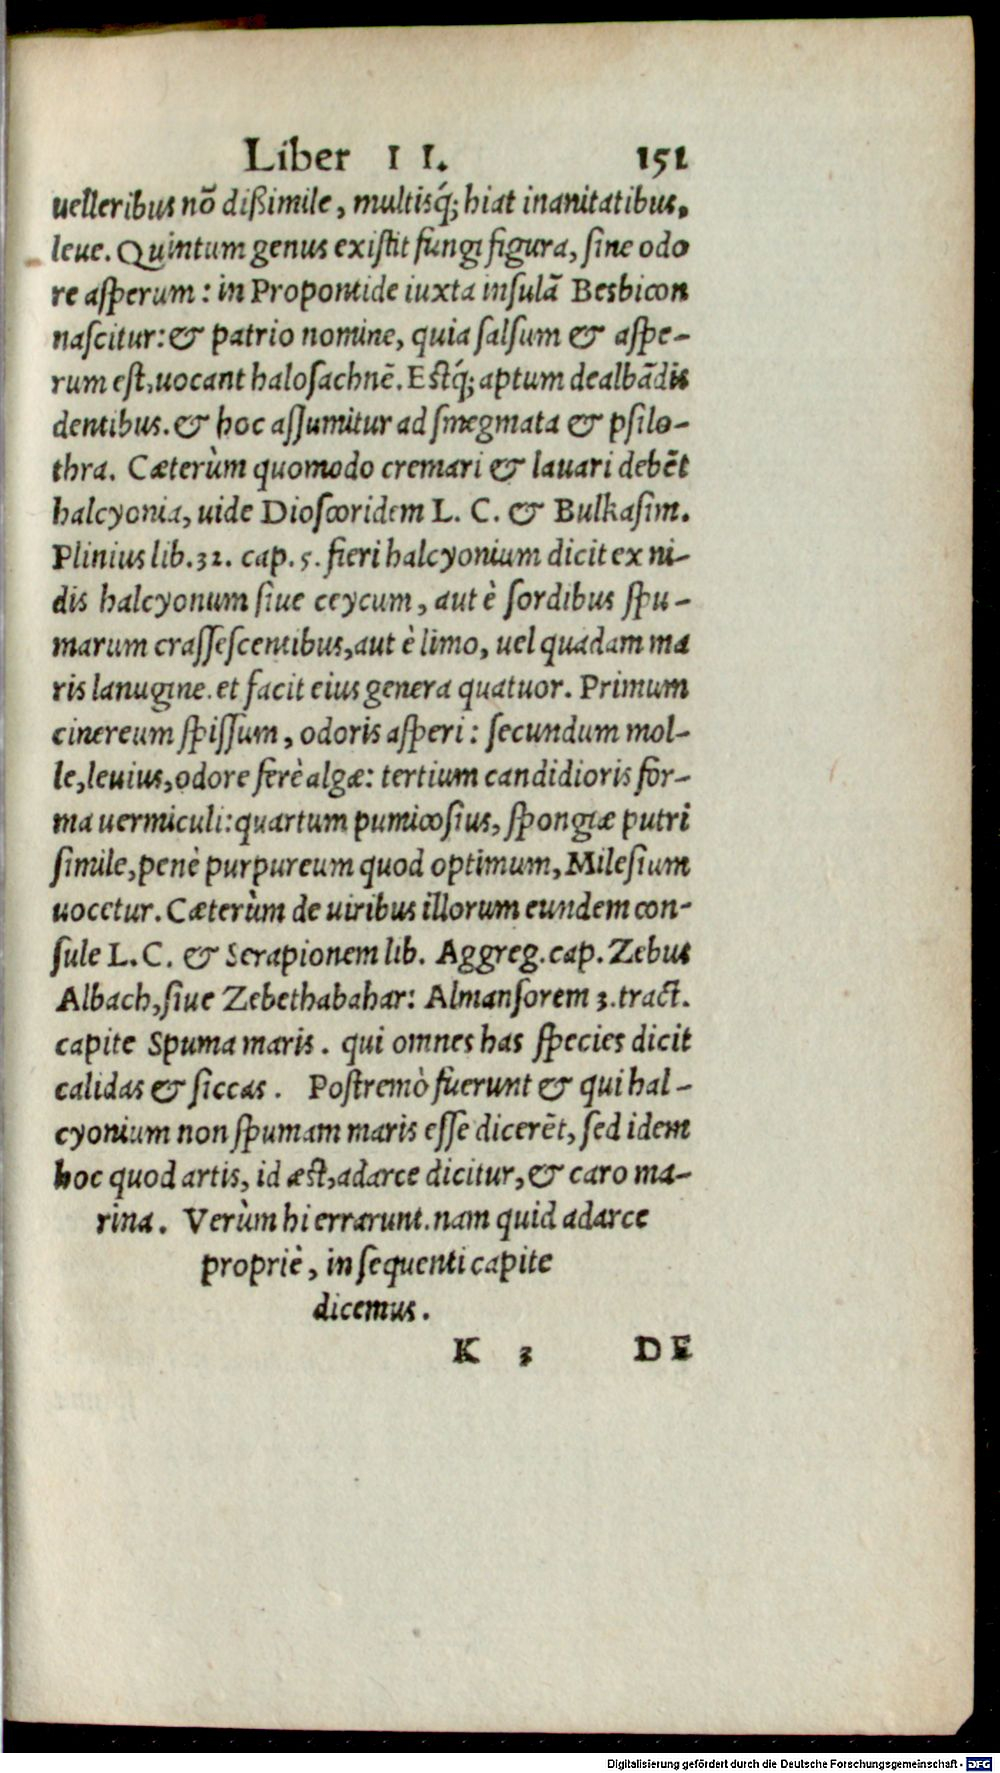 Liber II. 151
uelleribus nõ dißimile, multisq́; hiat inanitatibus,
leue. Quintum genus existit fungi figura, sine odo
re asperum: in Propontide iuxta insulã Besbicon
nascitur: & patrio nomine, quia salsum & aspe-
rum est, uocant halosachnẽ. Estq́; aptum dealbãdis
dentibus. & hoc assumitur ad smegmata & psilo-
thra. Cæterùm quomodo cremari & lauari debẽt
halcyonia, uide Dioscoridem L. C. & Bulkasim.
Plinius lib. 32. cap. 5. fieri halcyonium dicit ex ni-
dis halcyonum siue ceycum, aut è sordibus spu-
marum crassescentibus, aut è limo, uel quadam ma
ris lanugine. et facit eius genera quatuor. Primum
cinereum spissum, odoris asperi: secundum mol-
le, leuius, odore ferè algæ: tertium candidioris for-
ma uermiculi: quartum pumicosius, spongiæ putri
simile, penè purpureum quod optimum, Milesium
uocetur. Cæterùm de uiribus illorum eundem con-
sule L. C. & Serapionem lib. Aggreg. cap. Zebus
Albach, siue Zebethabahar: Almansorem 3. tract.
capite Spuma maris. qui omnes has species dicit
calidas & siccas. Postremò fuerunt & qui hal-
cyonium non spumam maris esse dicerẽt, sed idem
hoc quod artis, id æst, adarce dicitur, & caro ma-
rina. Verùm hi errarunt. nam quid adarce
propriè, in sequenti capite
dicemus.
K 3 DE
Digitalisierung gefördert durch die Deutsche Forschungsgemeinschaft - DFG